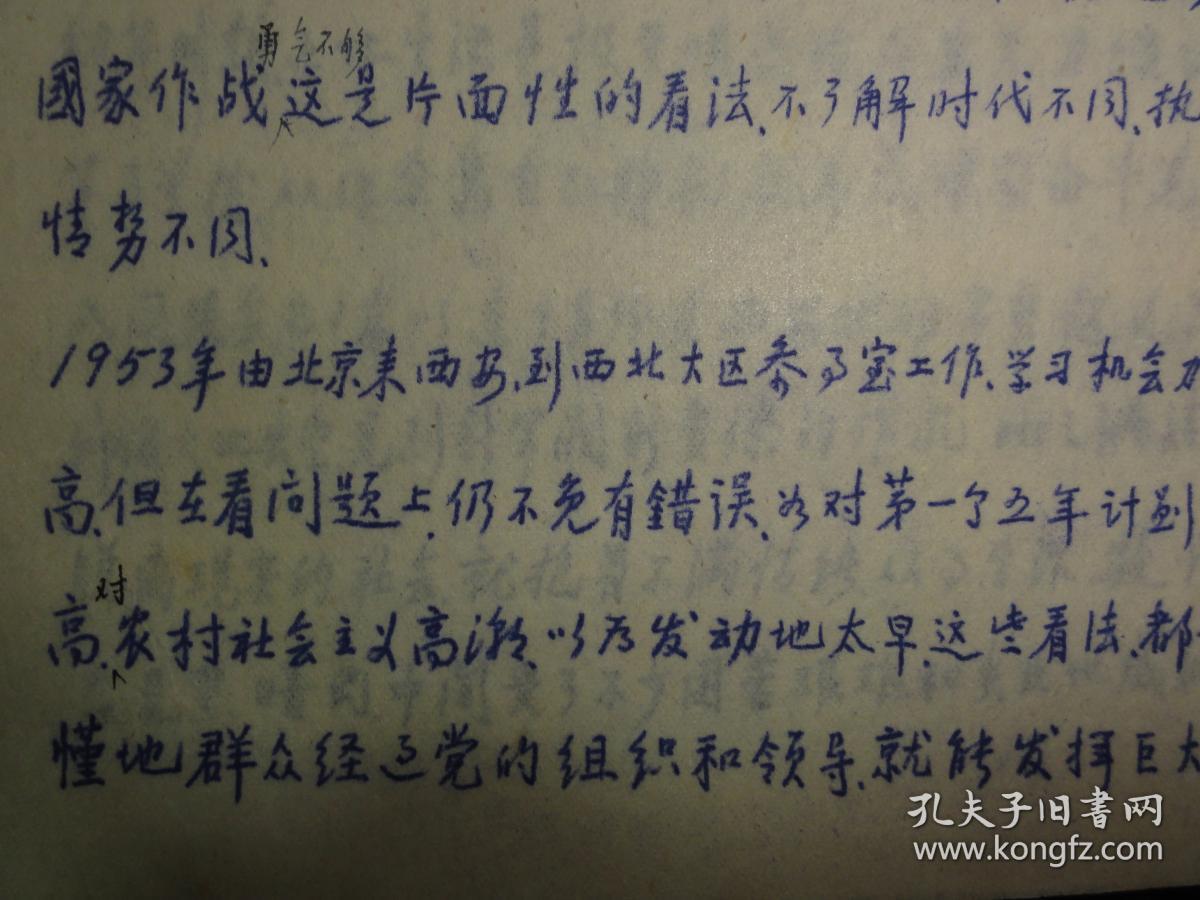 勇气不够
國家作战这是片面性的看法、不了解时代不同、执
情势不同、
1953年由北京来西安、到西北大区参了室工作、学习机会
高、但在看问题上、仍不免有錯误、为对第一个五年计划
对
高、农村社会主义高潮、以为发动地太早、这些看法、都
懂地群众经过党的组织和领导、就能发挥巨大
孔夫子旧書网
www.kongfz.com